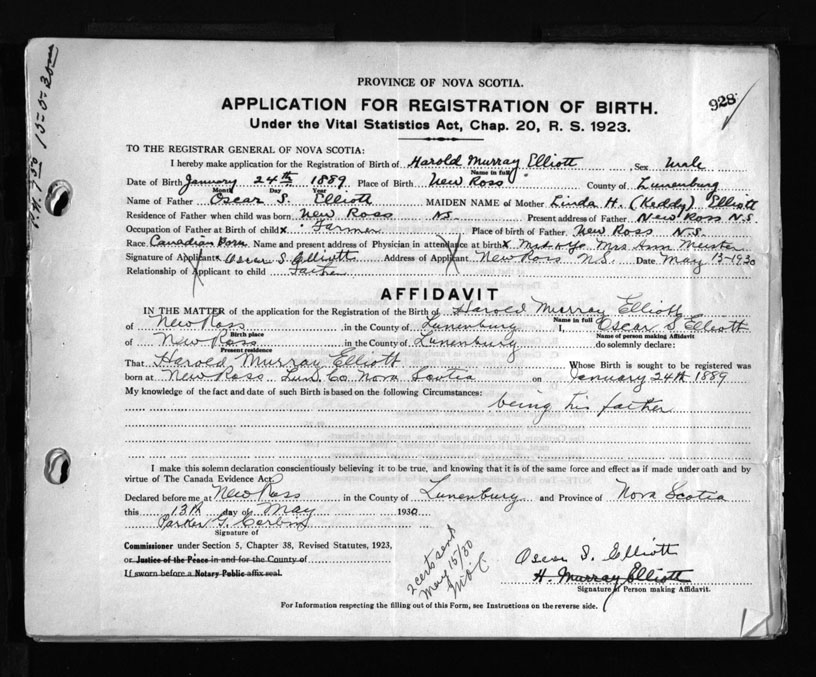 PROVINCE OF NOVA SCOTIA.
928
APPLICATION FOR REGISTRATION OF BIRTH.
Under the Vital Statistics Act, Chap. 20, R. S. 1923.
TO THE REGISTRAR GENERAL OF NOVA SCOTIA:
I hereby make application for the Registration of Birth of Harold Murray Elliott Sex Male
Name in full
Date of Birth January 24th 1889 Place of Birth New Ross County of Lunenburg
Month Day Year
Name of Father Oscar S. Elliott MAIDEN NAME of Mother Linda H. (Keddy) Elliott
Residence of Father when child was born New Ross NS. Present address of Father New Ross N.S.
Occupation of Father at Birth of child x Farmer Place of birth of Father New Ross N.S.
Race Canadian Born Name and present address of Physician in attendance at birth x Midwife Mrs Ann Meister
Signature of Applicant x Oscar S. Elliott Address of Applicant New Ross N.S. Date May 13-1930
Relationship of Applicant to child Father
AFFIDAVIT
IN THE MATTER of the application for the Registration of the Birth of Harold Murray Elliott
Name in full
of New Ross in the County of Lunenburg I, Oscar S Elliott
Birth place Name of person making Affidavit
of New Ross in the County of Lunenburg do solemnly declare:
Present residence
That Harold Murray Elliott Whose Birth is sought to be registered was
born at New Ross Lun. Co Nova Scotia on January 24th 1889
My knowledge of the fact and date of such Birth is based on the following Circumstances:
being his father
I make this solemn declaration conscientiously believing it to be true, and knowing that it is of the same force and effect as if made under oath and by
virtue of The Canada Evidence Act.
Declared before me at New Ross in the County of Lunenburg and Province of Nova Scotia
this 13th day of May 1930
Parker G.
Signature of
Commissioner under Section 5, Chapter 38, Revised Statutes, 1923,
or Justice of the Peace in and for the County of
If sworn before a Notary Public affix seal.
2 certs sent
May 15/30
Oscar S. Elliott
H. Murray Elliott
Signature of Person making Affidavit.
For Information respecting the filling out of this Form, see Instructions on the reverse side.